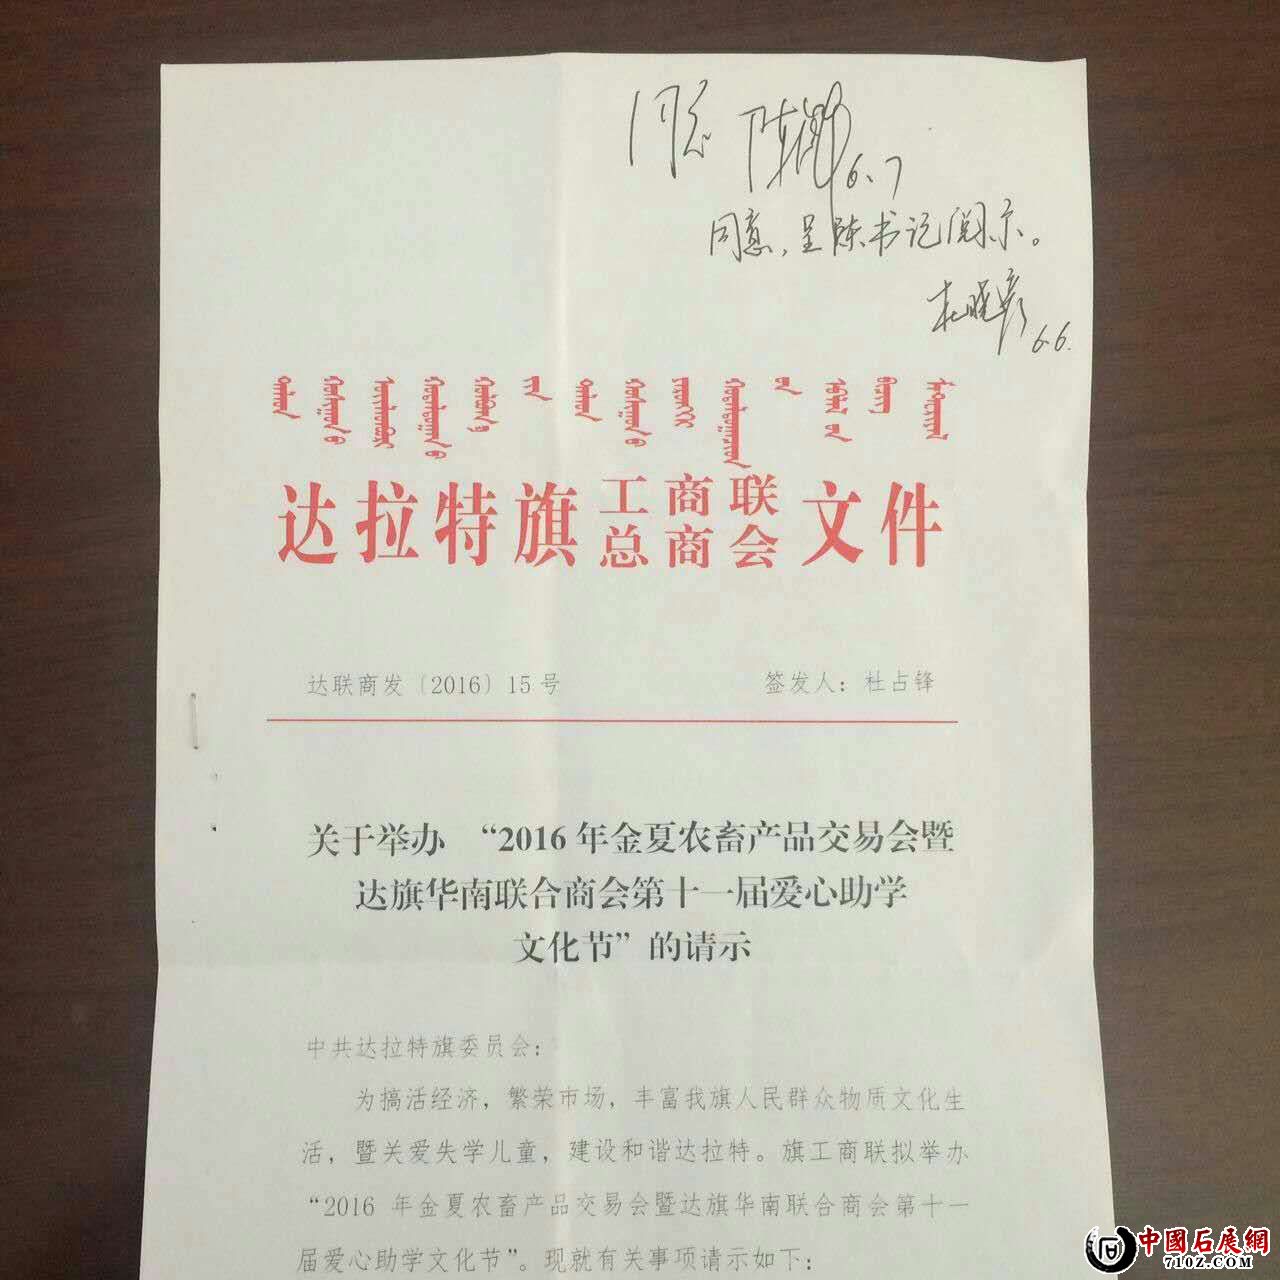 同意 陈 6.7
同意，呈陈书记阅示。
杜晓彦 6.6.
达拉特旗工商联总商会文件
达联商发〔2016〕15号 签发人：杜占锋
关于举办 “2016年金夏农畜产品交易会暨
达旗华南联合商会第十一届爱心助学
文化节”的请示
中共达拉特旗委员会：
为搞活经济，繁荣市场，丰富我旗人民群众物质文化生
活，暨关爱失学儿童，建设和谐达拉特。旗工商联拟举办
“2016 年金夏农畜产品交易会暨达旗华南联合商会第十一
届爱心助学文化节”。现就有关事项请示如下：
中國石展網
710Z.COM